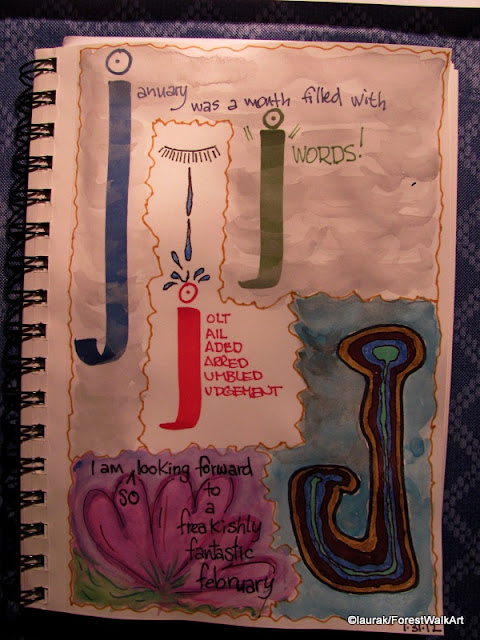 january was a month filled with
j WORDS!
jOLT
AIL
ADED
ARRED
UMBLED
UDGEMENT
J
I am so looking forward
to
a
freakishly
fantastic
february
1·31·12
©laurak/ForestWalkArt